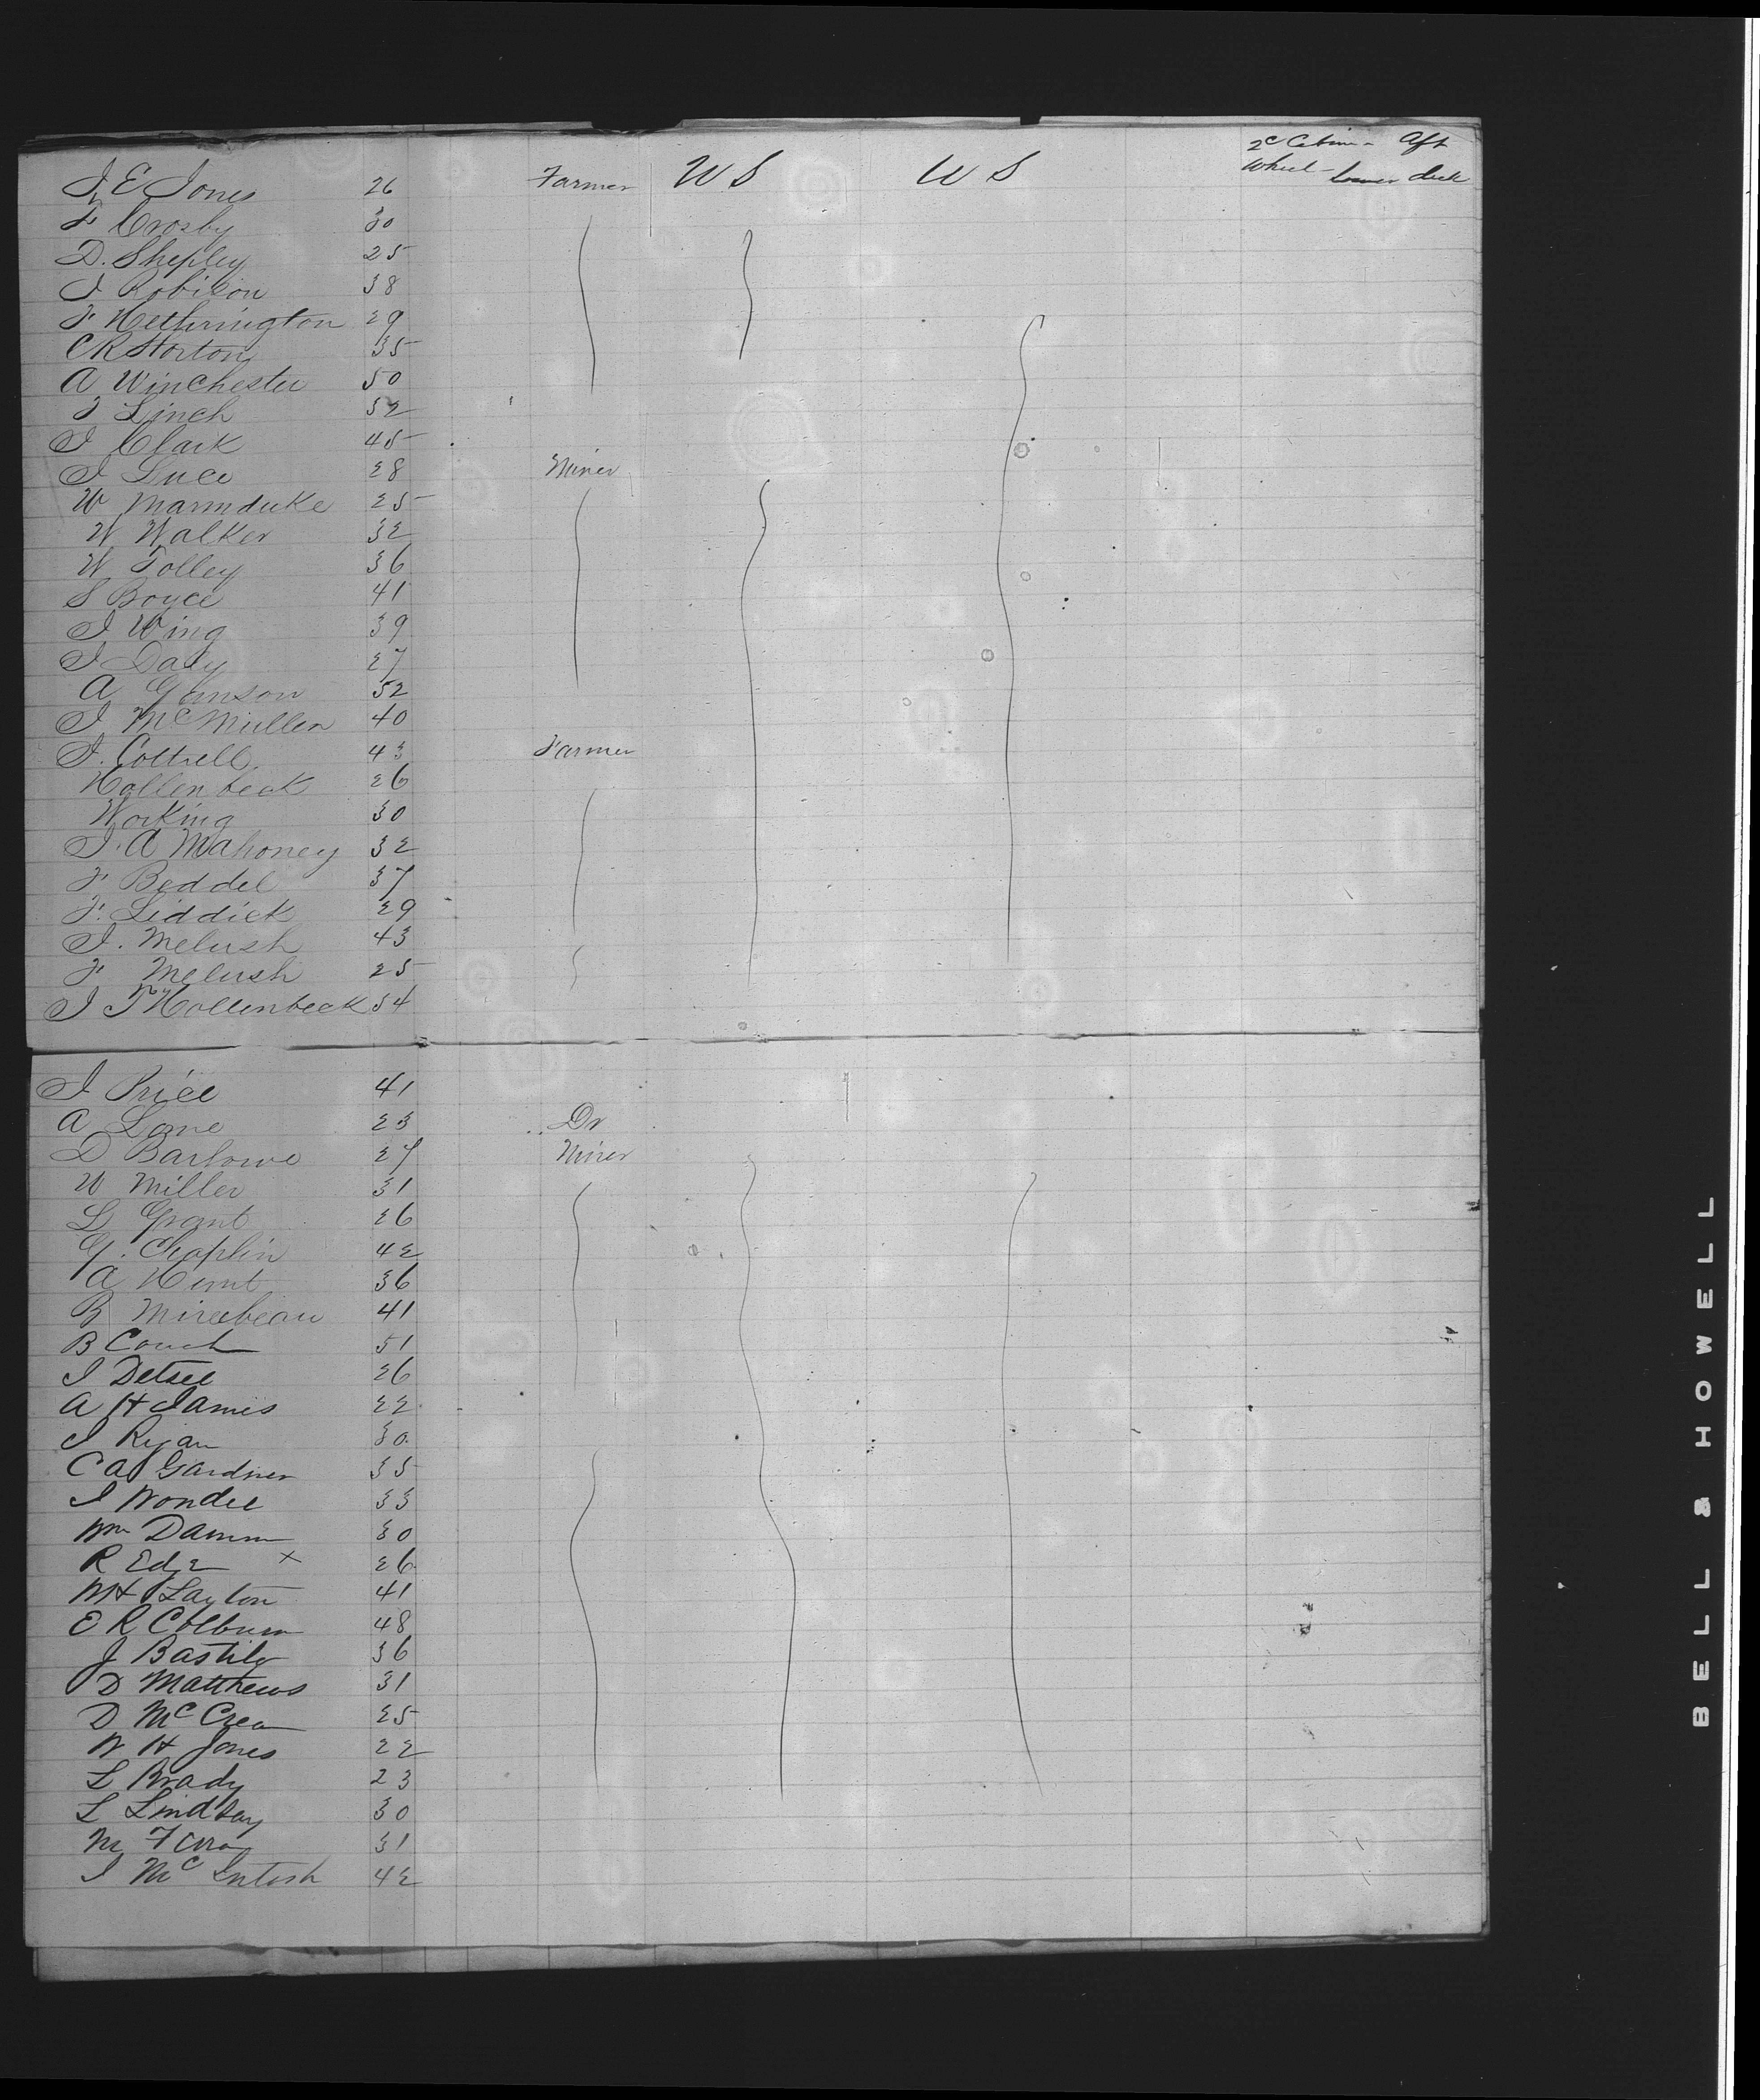 J E Jones 26 Farmer U S U S 2c Cabin - Aft
Wheel - lower deck
F Crosby 30
D. Shepley 25
J Robison 38
F Hetherington 29
C R Horton 35
A Winchester 50
F Linch 52
J Clark 45
J Luce 28 Miner
W Marmduke 25
W Walker 32
W Tolley 36
S Boyce 41
J Wing 39
J Daly 27
A Gunson 52
J McMullen 40
J. Cottrell 43 Farmer
Hollenbeck 26
Working 30
J. A Mahoney 32
F Beddel 37
F. Liddick 29
J. Melush 43
F Melush 25
J T Hollenbeck 54
J Price 41
A Lane 23 Dr
D Barlowe 27 Miner
W Miller 31
L Grant 26
G. Chaplin 42
A Hunt 36
B Mireebeau 41
B Couch 51
J Detsel 26
A H James 22
J Ryan 30
C A Gardner 35
J Wondel 33
Wm Damm 30
R Edge x 26
M H Layton 41
E R Colburn 48
J Bastile 36
D Matthews 31
D McCrea 25
W H Jones 22
L Brady 23
L Lindsay 30
M 31
J McIntosh 42
BELL & HOWELL